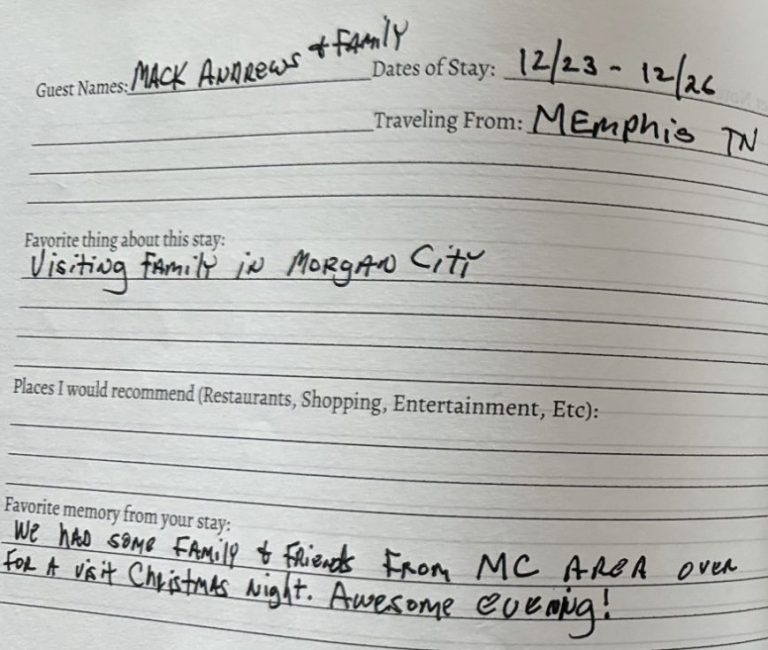 Guest Names: MACK ANDREWS + FAMILY
Dates of Stay: 12/23 - 12/26
Traveling From: MEMPHIS TN
Favorite thing about this stay:
Visiting FAMILY iN MORGAN CiTY
Places I would recommend (Restaurants, Shopping, Entertainment, Etc):
Favorite memory from your stay:
We HAD some FAMILY + FRiENDS FROM MC AREA OVER
FOR A Visit CHRISTMAS Night. AWESOME EVENiNg!